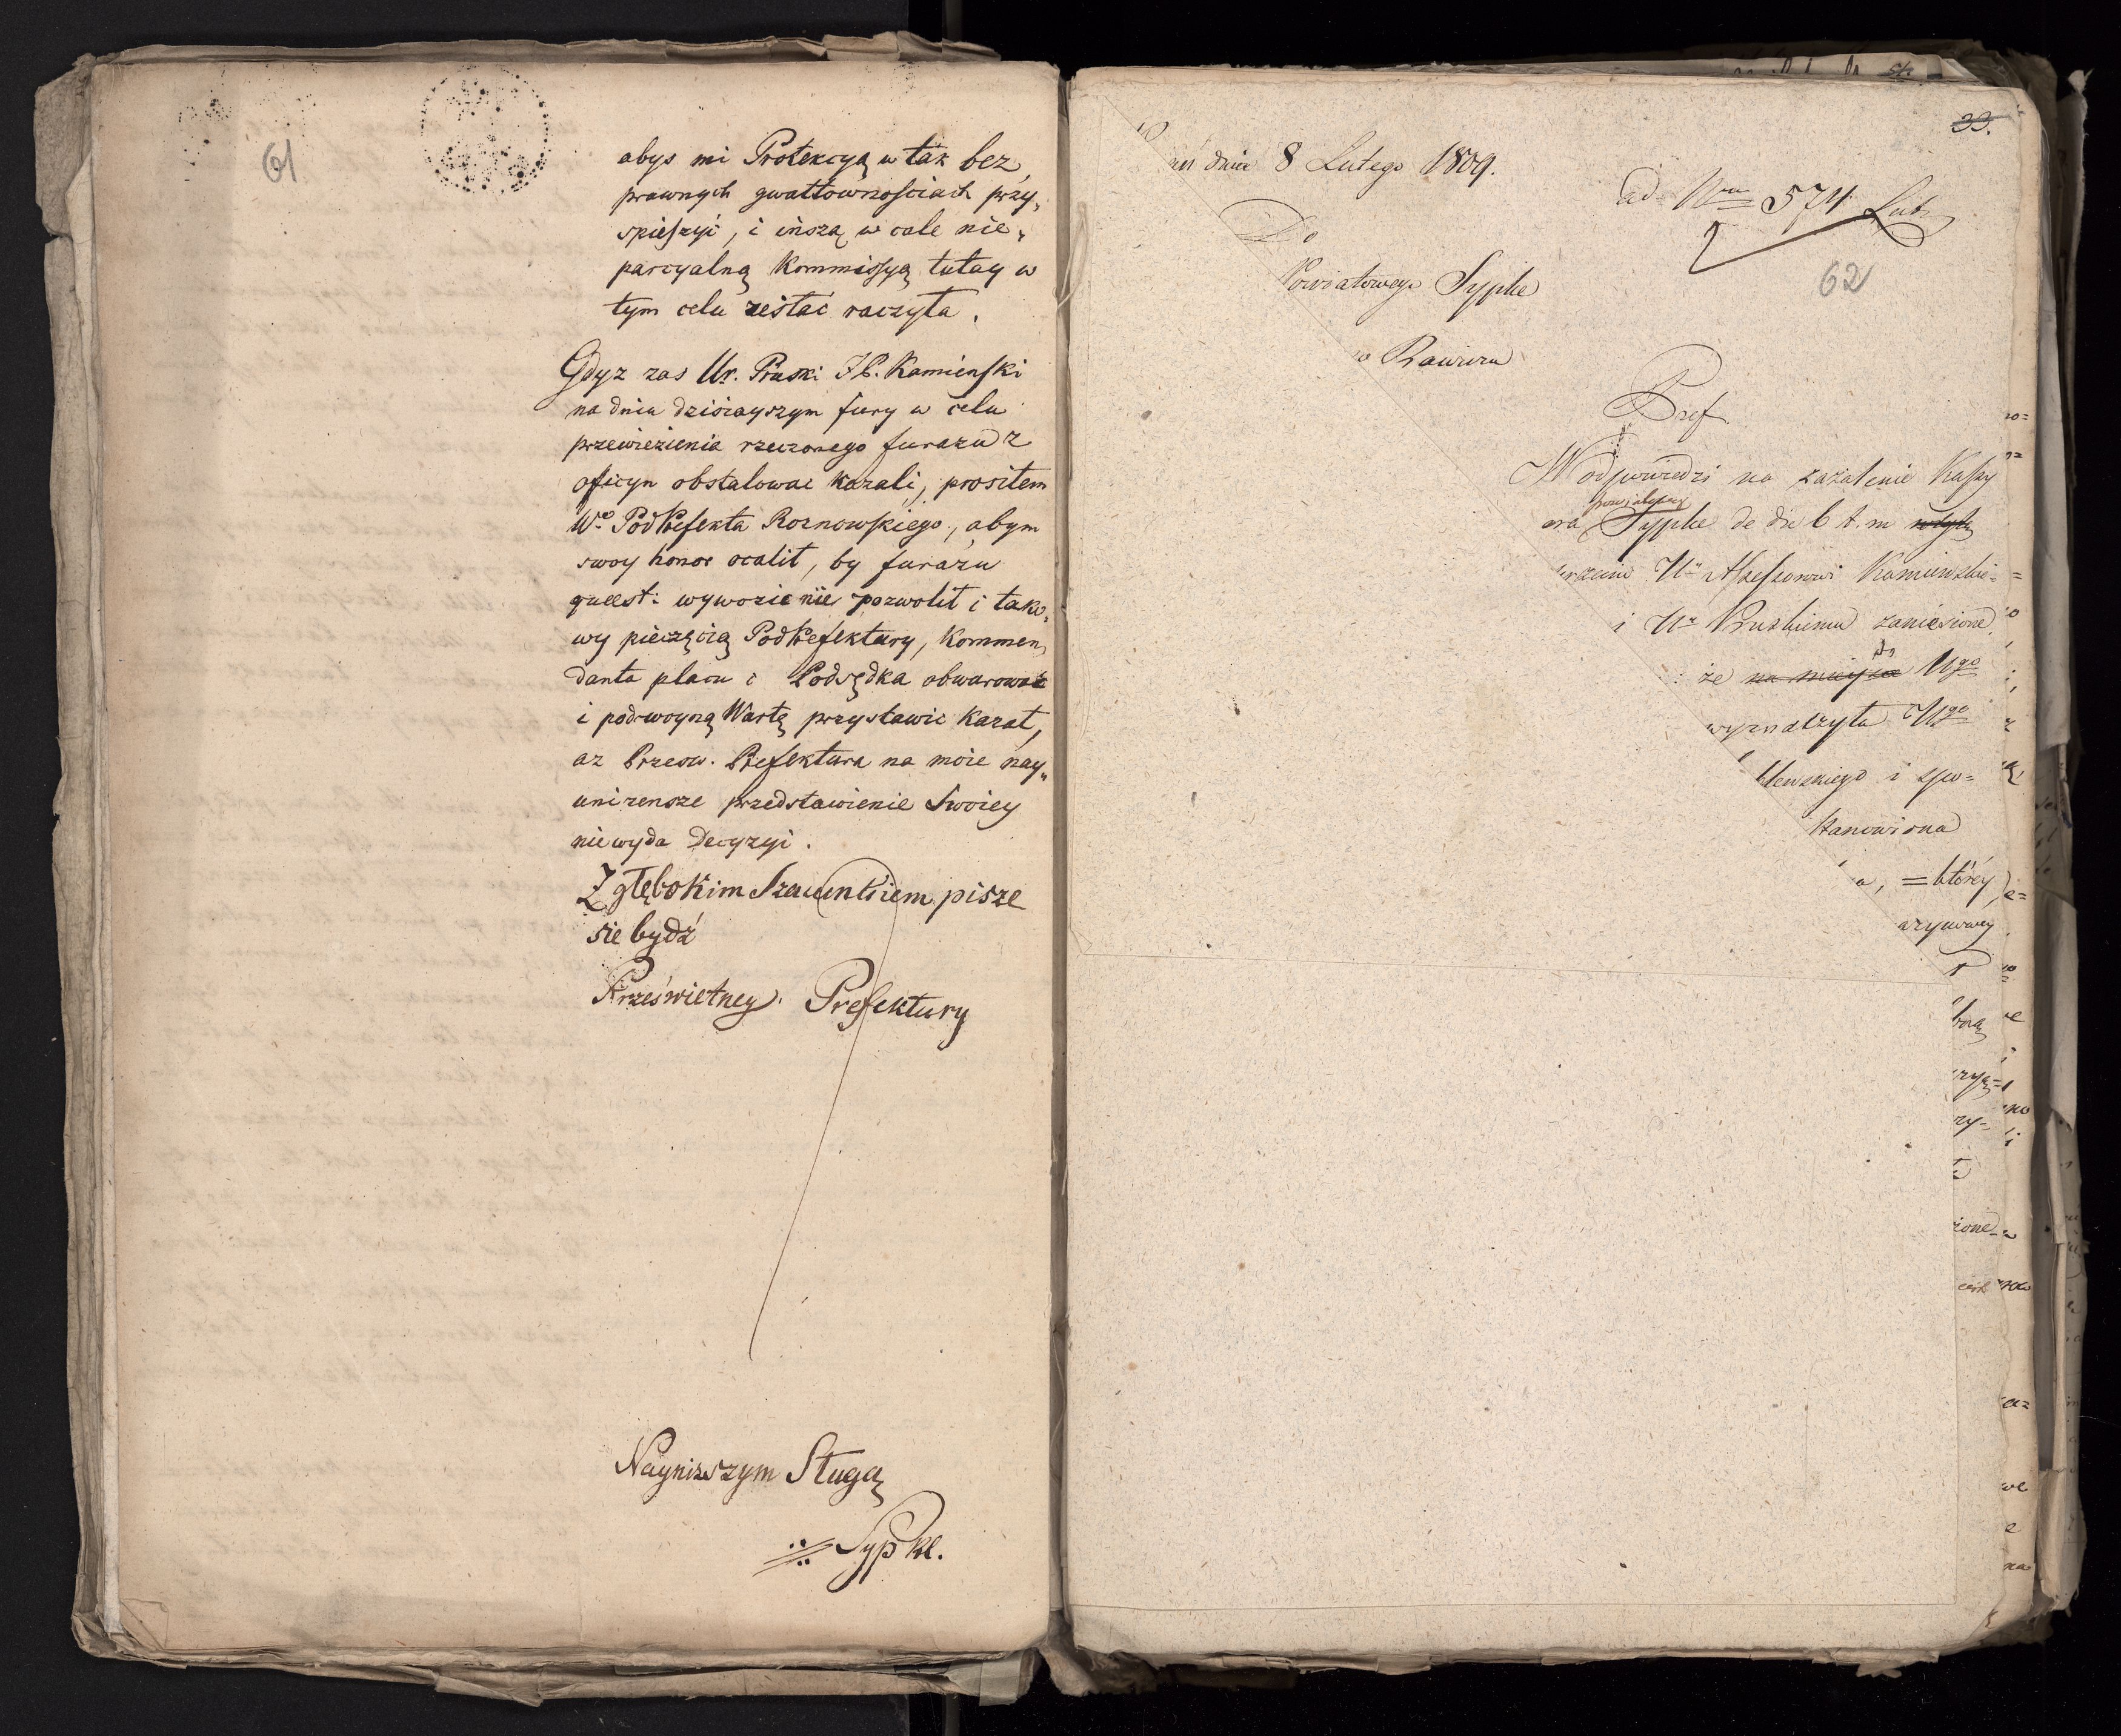 61
abys mi Protekcyą w tak bez,
prawnych gwałtownościach przy,
spieszyi, i inszą w cale nie,
parcyalną Kommissyą tutay w
tym celu zesłać raczyła.
Gdyz zas Ur. Pruski J P. Kamienski
na dniu dzisieyszym fury w celu
przewiezienia rzeczonego furazu z
oficyn obstalowac kazali, prosiłem
Wo PodPrefekta Roznowskiego, abym
swoy honor ocalił, by furazu
quaest: wywozic nie pozwolił i tako,
wy pieczęcią PodPrefektury, Kommen,
danta placu i Podsędka obwarowac
i podwoyną Wartę przystawic kazał,
az Przesw. Prefektura na moie nay,,
unizensze przedstawienie Swoiey
niewyda Decyzyi.
Z głębokim Szacunkiem pisze
sie bydź
Prześwietney Prefektury
Nayniższym Sługą
Sypke.
33.
dnia 8 Lutego 1809.
ad Nrum 574 Lub
62
Do
Powiatowego Sypke
w Rawiczu
Pref
W odpowiedzi na zażalenie Kassy
powiatowey
Sypke de die 6 t. m
Ur Assessorowi Kamienskie=
i Ur Pruskiemu zaniesione
że na mieysce do Ugo
wyznaczyła Ugo
i spo=
stanowiona
a, =którey